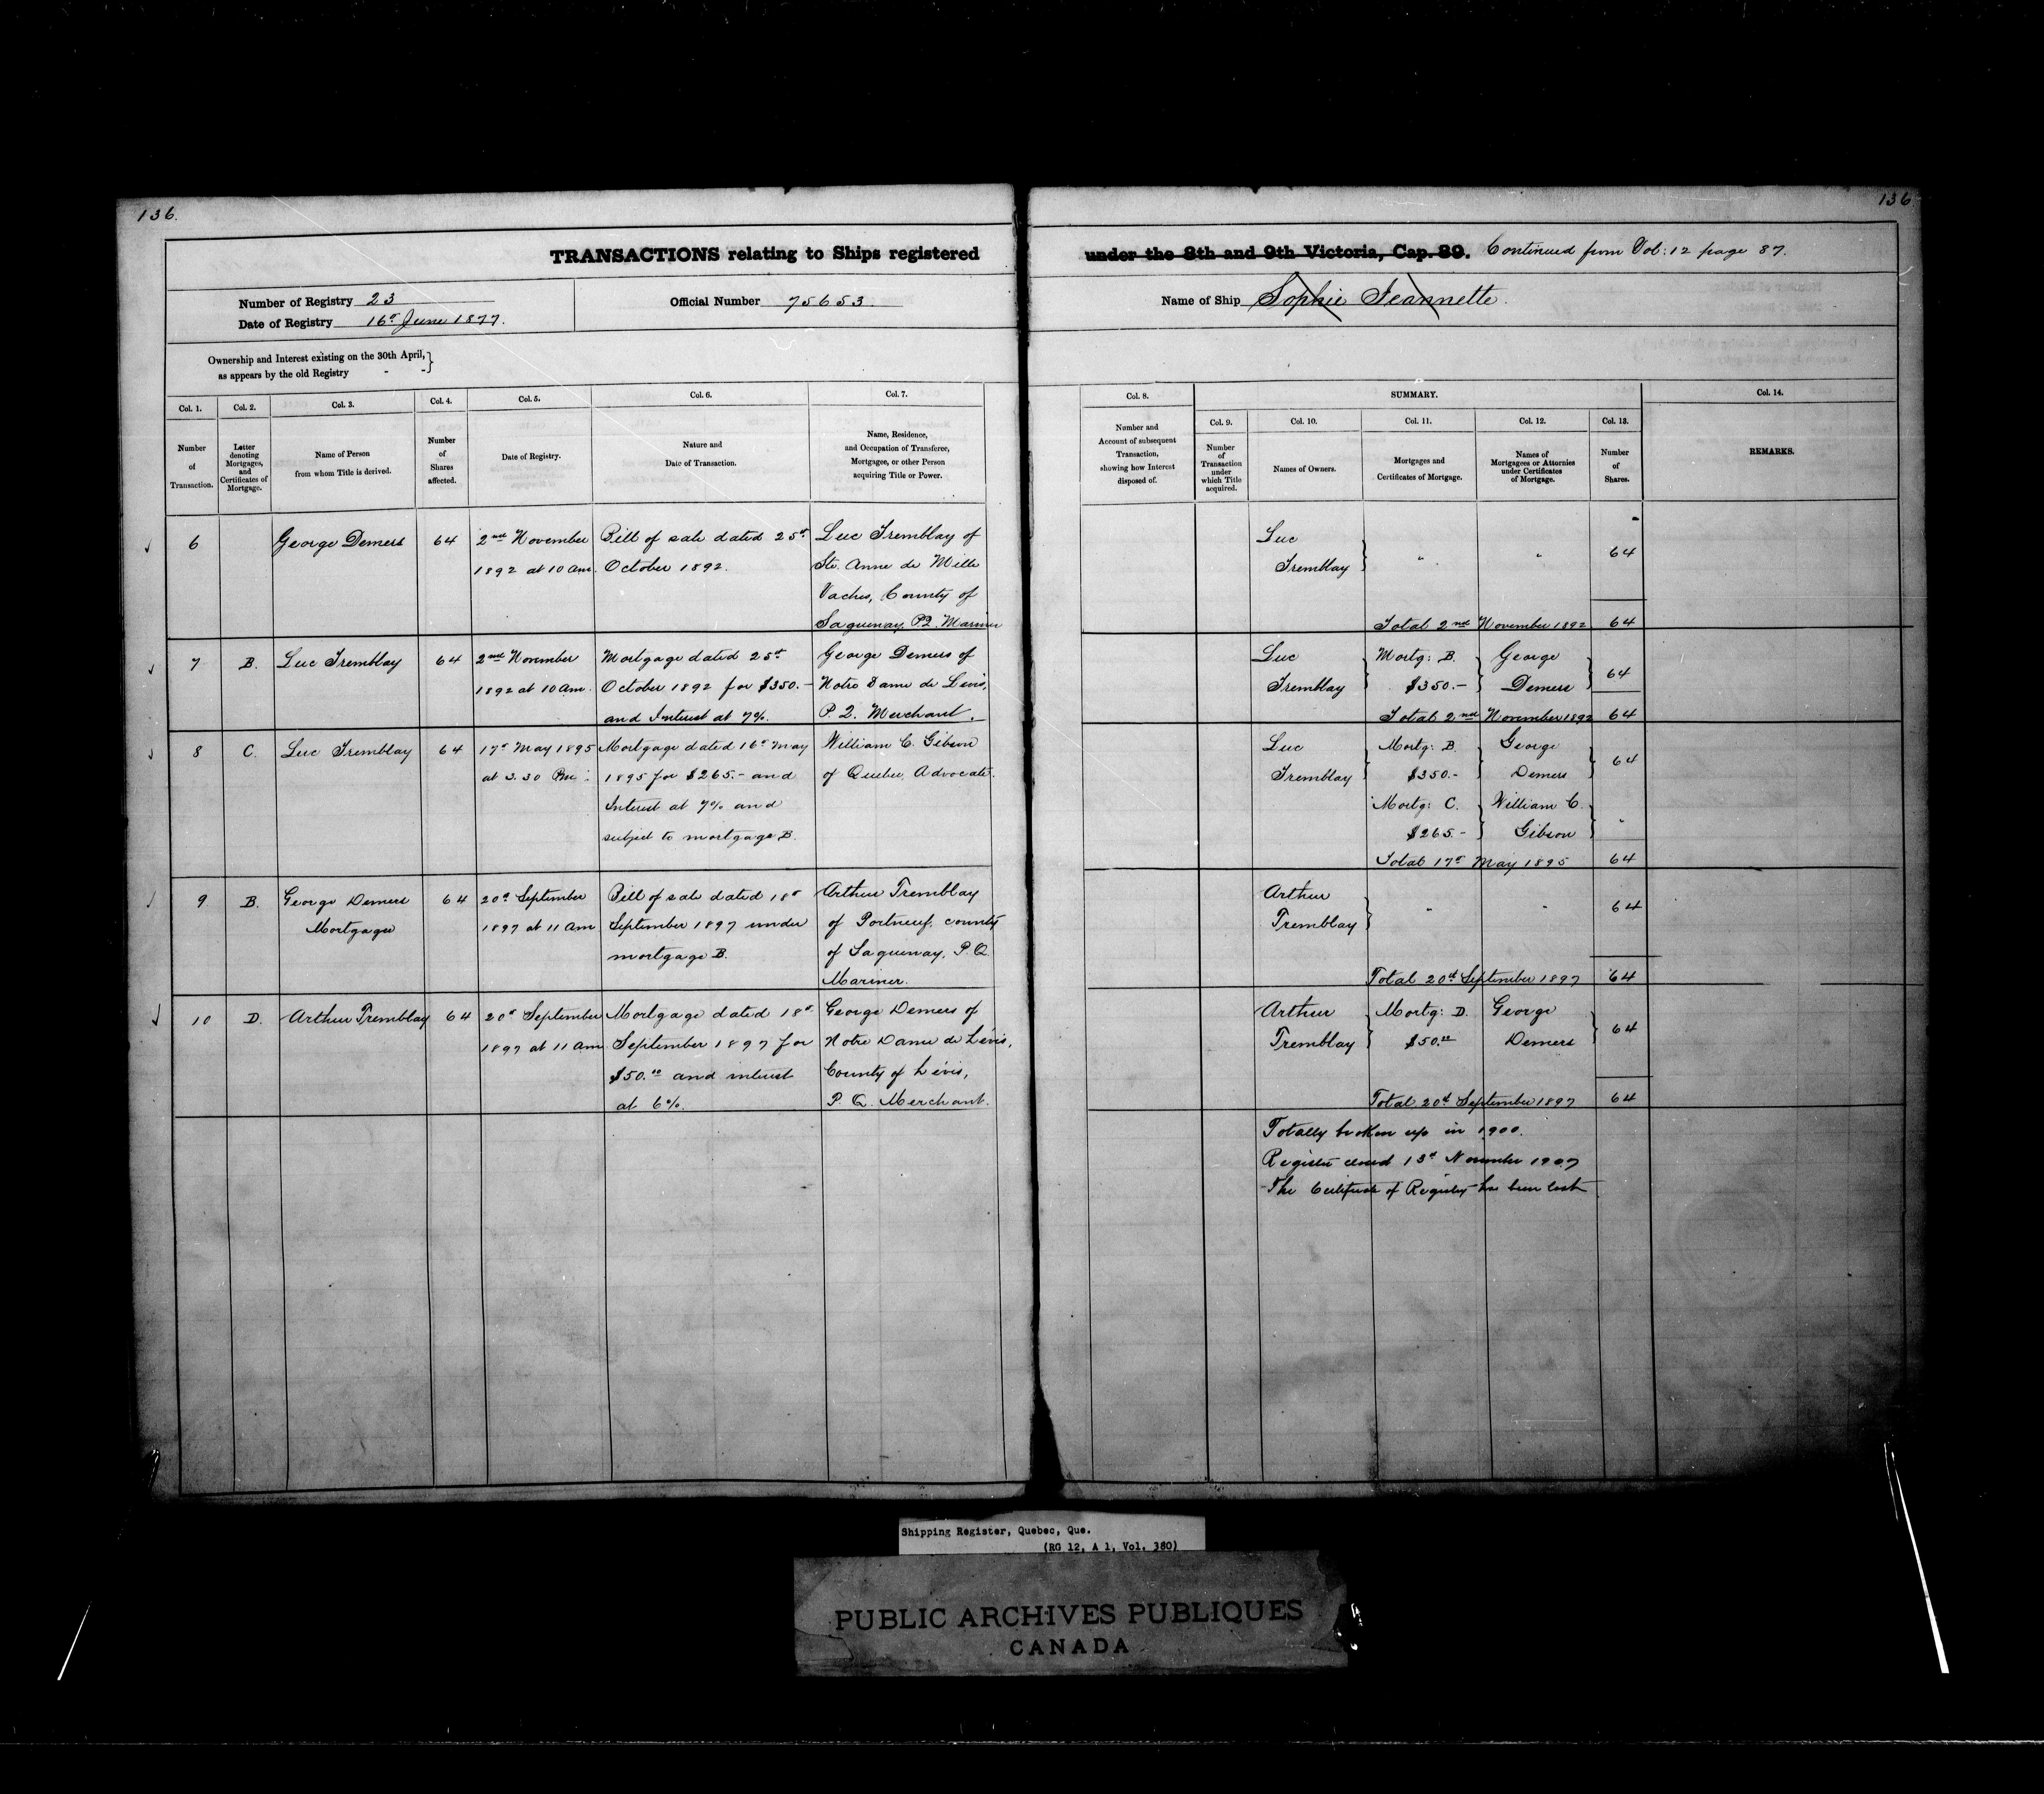 136.
136
TRANSACTIONS relating to Ships registered under the 8th and 9th Victoria, Cap. 89. Continued from Vol: 12 page 87.
Number of Registry 23
Date of Registry 16th June 1877.
Official Number 75653
Name of Ship Sophie Jeannette.
Ownership and Interest existing on the 30th April,
as appears by the old Registry - -}
Col. 1.
Number
of
Transaction.
Col. 2.
Letter
denoting
Mortgages,
and
Certificates of
Mortgage.
Col. 3.
Name of Person
from whom Title is derived.
Col. 4.
Number
of
Shares
affected.
Col. 5.
Date of Registry.
Col. 6.
Nature and
Date of Transaction.
Col. 7.
Name, Residence,
and Occupation of Transferee,
Mortgagee, or other Person
acquiring Title or Power.
Col. 8.
Number and
Account of subsequent
Transaction,
showing how Interest
disposed of.
SUMMARY.
Col. 9.
Number
of
Transaction
under
which Title
acquired.
Col. 10.
Names of Owners.
Col. 11.
Mortgages and
Certificates of Mortgage.
Col. 12.
Names of
Mortgagees or Attornies
under Certificates
of Mortgage.
Col. 13.
Number
of
Shares.
Col. 14.
REMARKS.
6
George Demers
64
2nd November
1892 at 10 am.
Bill of sale dated 25th
October 1892.
Luc Tremblay of
Ste. Anne de Mille
Vaches, County of
Saguenay, P.Q. Mariner
Luc
Tremblay }
"
"
64
Total 2nd November 1892 64
7
B.
Luc Tremblay
64
2nd November
1892 at 10 am.
Mortgage dated 25th
October 1892 for $350.-
and Interest at 7%.
George Demers of
Notre Dame de Levis,
P. Q. Merchant.
Luc
Tremblay }
Mortg: B.
$350.- }
George
Demers }
64
Total 2nd November 1892 64
8
C.
Luc Tremblay
64
17th May 1895
at 3.30 Pm:
Mortgage dated 16th May
1895 for $265.- and
Interest at 7% and
subject to mortgage B.
William C. Gibson
of Quebec, Advocate.
Luc
Tremblay }
Mortg: B.
$350.-
George
Demers }
64
Mortg: C.
$265.- }
William C.
Gibson }
"
Total 17th May 1895 64
9
B.
George Demers
Mortgagee
64
20th September
1897 at 11 am
Bill of sale dated 18th
September 1897 under
mortgage B.
Arthur Tremblay
of Portneuf, county
of Saguenay, P. Q.
Mariner.
Arthur
Tremblay }
"
"
64
Total 20th September 1897 64
10
D.
Arthur Tremblay
64
20th September
1897 at 11 am
Mortgage dated 18th
September 1897 for
$50.00 and interest
at 6%.
George Demers of
Notre Dame de Lévis,
County of Lévis,
P. Q. Merchant.
Arthur
Tremblay }
Mortg: D.
$50.00
George
Demers }
64
Total 20th September 1897 64
Totally broken up in 1900.
Register closed 13th November 1907
The Certificate of Registry has been lost
Shipping Register, Quebec, Que.
(RG 12, A 1, Vol. 380)
PUBLIC ARCHIVES PUBLIQUES
CANADA